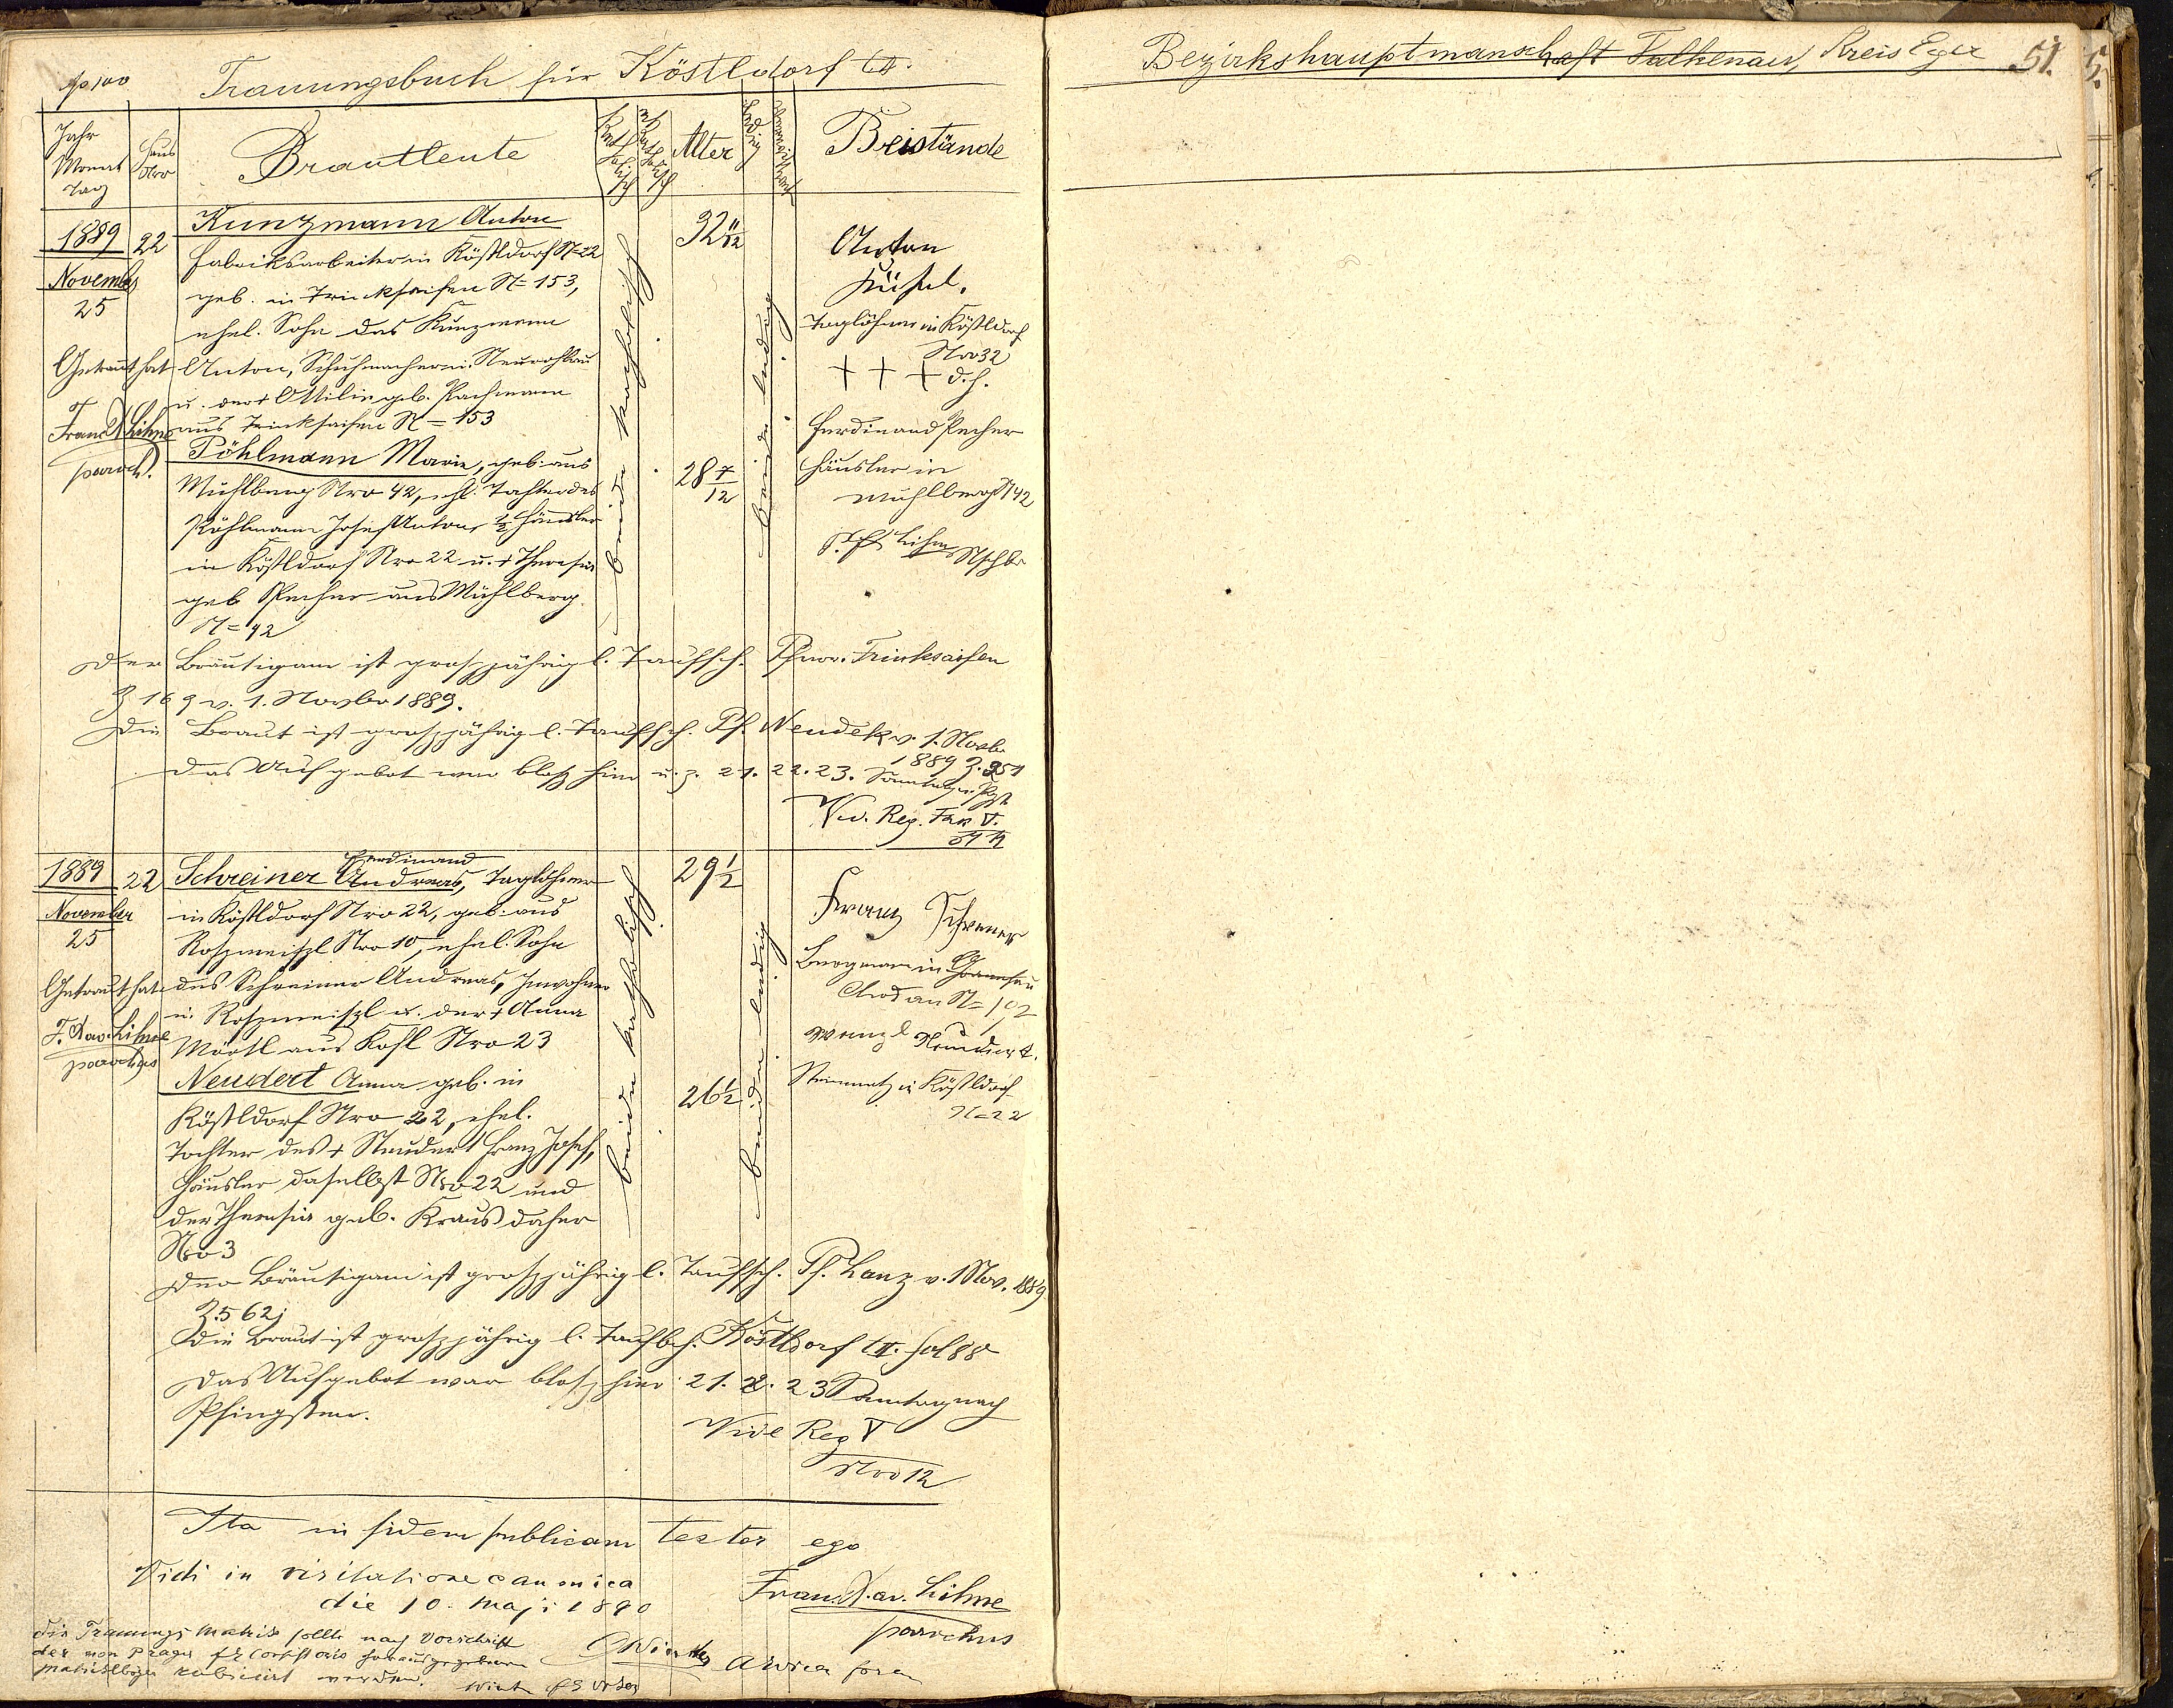 Trauungsbuch für Köstldorf
Bezirkshauptmanschaft Falkenau, Kreis Eger
51.
Jahr
Monat
Tag
Haus
Nro
Brautleute
Alter
Beistände
1889
22
Kunzmann Anton
Fabriksarbeiter in Köstldorf N=22
geb. in Trinksaifen N=153,
ehel. Sohn des Kunzmann
Anton, Schuhmacher in Neurohlau
u. der + Ottilie geb. Pachmann
aus Trinksaifen N=153
November
25
Getraut hat
Franz X Lihne
paroch.
Pöhlmann Marie, geb. aus
Mühlberg Nro 42, ehl. Tochter des
Pöhlmann Josef Anton, 1/2 Häusler
in Köstldorf Nro 22 u. + Theresia
geb Pecher aus Mühlberg.
N=42
beide katholisch
32 11/12
28 7/12
beide ledig
Anton
Taglöhner in Köstldorf
Nro 32
+ + + d. h.
Ferdinand Pecher
Häusler in
Mühlberg N 42
Der Bräutigam ist großjährig l. Taufsch. Pfarr. Trinksaifen
Z 169 v. 1. Novbr 1889.
Die Braut ist großjährig l. Taufsch. Pf. Neudek v. 1. Novbr
1889 Z. 951
Das Aufgebot war bloß hier u. z. 21. 22. 23. Sonntag n. Pfgst
Vid. Reg. Fasc V.
1889
22
Schreiner Ferdinand
Andreas, Taglöhner
in Köstldorf Nro 22, geb. aus
Roßmeißl Nro 10, ehel. Sohn
des Schreiner Andreas, Inwohner
in Roßmeißl u. der + Anna
Mörtl aus Kohl Nro 23
November
25
Getraut hat
F. Xav. Lihne
parochus
Neudert Anna geb. in
Köstldorf Nro 22, ehel.
Tochter des + Neudert Franz Josef,
Häusler daselbst Nro 22 und
der Theresia geb. Kraus daher
Nro 3
beide katholisch
29 1/2
26 1/2
beide ledig
Franz Schreiner
Bergmann in
Chodau N=102
Wenzl Neudert.
Steinmetz in Köstldorf
N=22
Der Bräutigam ist großjährig l. Taufsch. Pf. Lanz v. 1 Nov. 1889
Z. 562;
Die Braut ist großjährig l. Taufbch. Köstldorf t II. fol 88
Das Aufgebot war bloß hier 21. 22. 23 Sonntag nach
Pfingsten.
Vide Reg V
Nro 12
Ita in fidem publicam testor ego
Franz Xav. Lihne
parochus
Vidi in visitatione canonica
die 10. Maji 1890
Die Trauungs Matrik sollte nach Vorschrift
der vom Prager fe Consistorio herausgegebenen
Matrikbögen rubricirt werden.